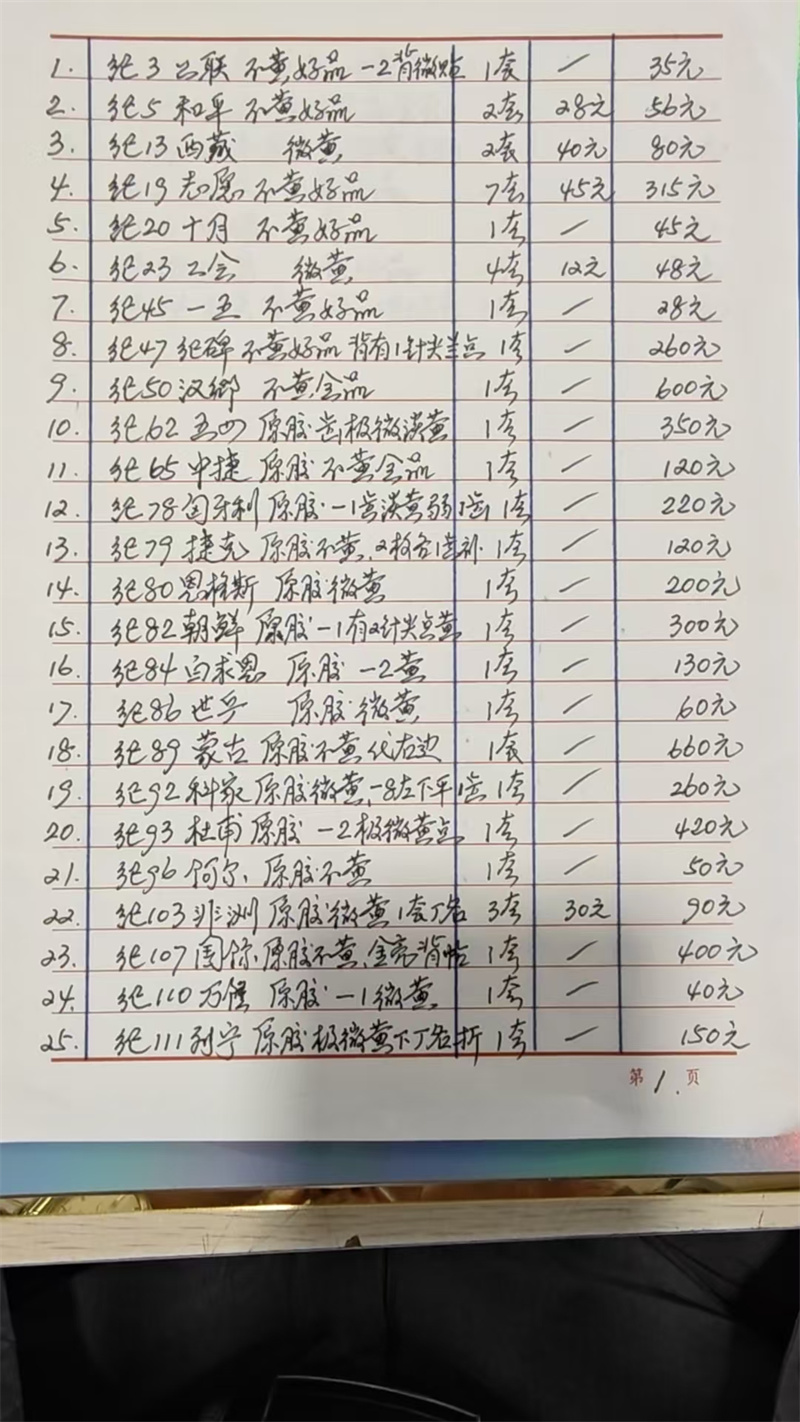 1. 纪3 工联 不黄好品 -2背微贴 1套 / 35元
2. 纪5 和平 不黄好品 2套 28元 56元
3. 纪13 西藏 微黄 2套 40元 80元
4. 纪19 志愿 不黄好品 7套 45元 315元
5. 纪20 十月 不黄好品 1套 / 45元
6. 纪23 工会 微黄 4套 12元 48元
7. 纪45 一五 不黄好品 1套 / 28元
8. 纪47 纪碑 不黄好品 背有1针尖 点 1套 / 260元
9. 纪50 汉卿 不黄全品 1套 / 600元
10. 纪62 五四 原胶 齿极微淡黄 1套 / 350元
11. 纪65 中捷 原胶 不黄全品 1套 / 120元
12. 纪78 匈牙利 原胶 -1齿淡黄弱1齿 1套 / 220元
13. 纪79 捷克 原胶不黄,2枚各1 补 1套 / 120元
14. 纪80 恩格斯 原胶微黄 1套 / 200元
15. 纪82 朝鲜 原胶 -1有2针尖点黄 1套 / 300元
16. 纪84 白求恩 原胶 -2黄 1套 / 130元
17. 纪86 世乒 原胶 微黄 1套 / 60元
18. 纪89 蒙古 原胶不黄 右边 1套 / 660元
19. 纪92 科家 原胶微黄,-8左下平1齿 1套 / 260元
20. 纪93 杜甫 原胶 -2极微黄点 1套 / 420元
21. 纪96 阿尔. 原胶不黄 1套 / 50元
22. 纪103 非洲 原胶 微黄 1套 3套 30元 90元
23. 纪107 国际 原胶不黄, 背帖 1套 / 400元
24. 纪110 万隆 原胶 -1微黄 1套 / 40元
25. 纪111 列宁 原胶极微黄下 折 1套 / 150元
第1.页